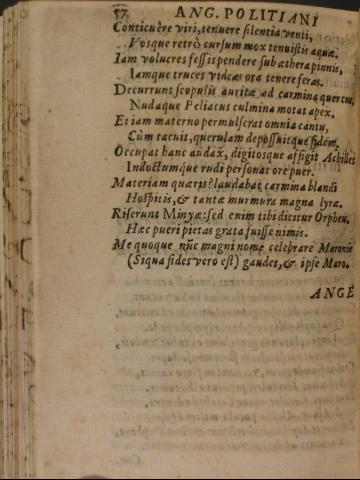 57. ANG. POLITIANI
Conticuêre viri, tenuere silentia venti,
Vosque retrò cursum mox tenuistis aquæ.
Iam volucres fessis pendere sub æthera pinnis,
Iamque truces videas ora tenere feras.
Decurrunt scopulis auritæ ad carmina quercus,
Nudaque Peliacus culmina motat apex.
Et iam materno permulserat omnia cantu,
Cùm tacuit, querulam deposuitque fidem,
Occupat hanc audax, digitosque affigit Achilles
Indoctumque rudi personat ore puer.
Materiam quæris? laudabat carmina blandi
Hospitis, & tantæ murmura magna lyræ.
Riserunt Minyæ: sed enim tibi dicitur Orpheu.
Hæc pueri pietas grata fuisse nimis.
Me quoque nũc magni nomē celebrare Maronis
(Siqua fides vero est) gaudet, & ipse Maro.
ANGE